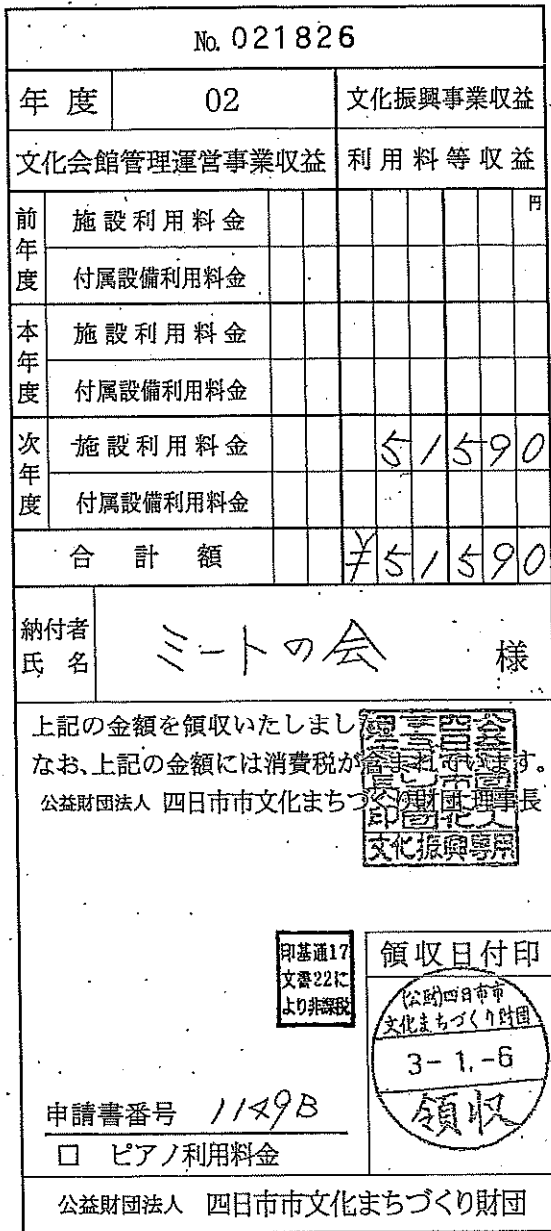 No. 021826
年度 02 文化振興事業収益
文化会館管理運営事業収益 利用料等収益
前年度 施設利用料金 円
付属設備利用料金
本年度 施設利用料金
付属設備利用料金
次年度 施設利用料金 51590
付属設備利用料金
合計額 ¥51590
納付者氏名 ミートの会 様
上記の金額を領収いたしまし
なお、上記の金額には消費税が含まれています。
公益財団法人 四日市市文化まちづくり財団理事長
文化振興専用
印基通17
文書22に
より非課税
領収日付印
(公財)四日市市
文化まちづくり財団
3-1.-6
領収
申請書番号 1149B
□ ピアノ利用料金
公益財団法人 四日市市文化まちづくり財団